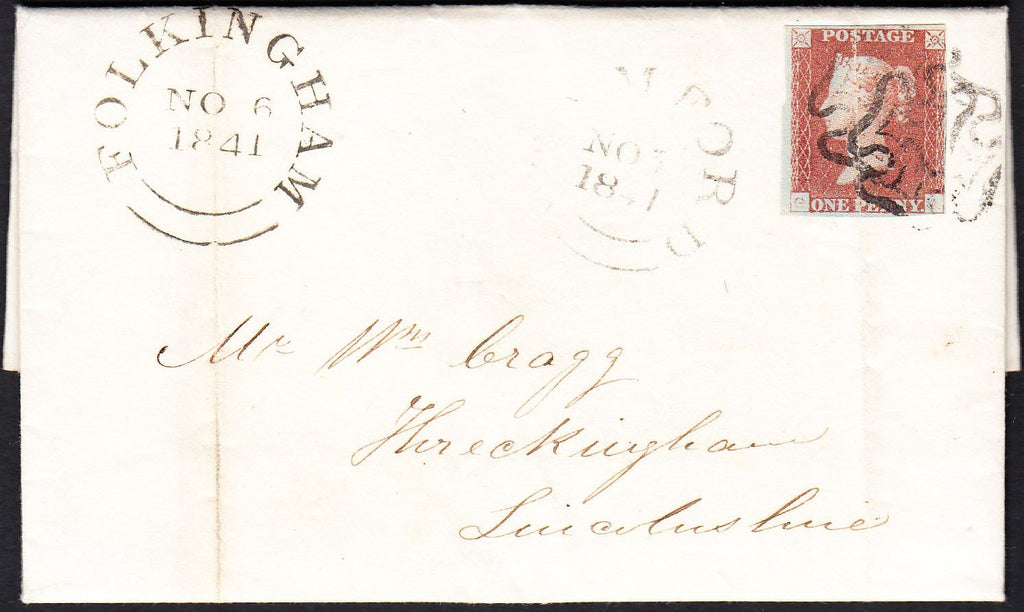 FOLKINGHAM
NO 6
1841
FORD
NO
POSTAGE
ONE PENNY
Mr Wm Cragg
Threckingham
Lincolnshire